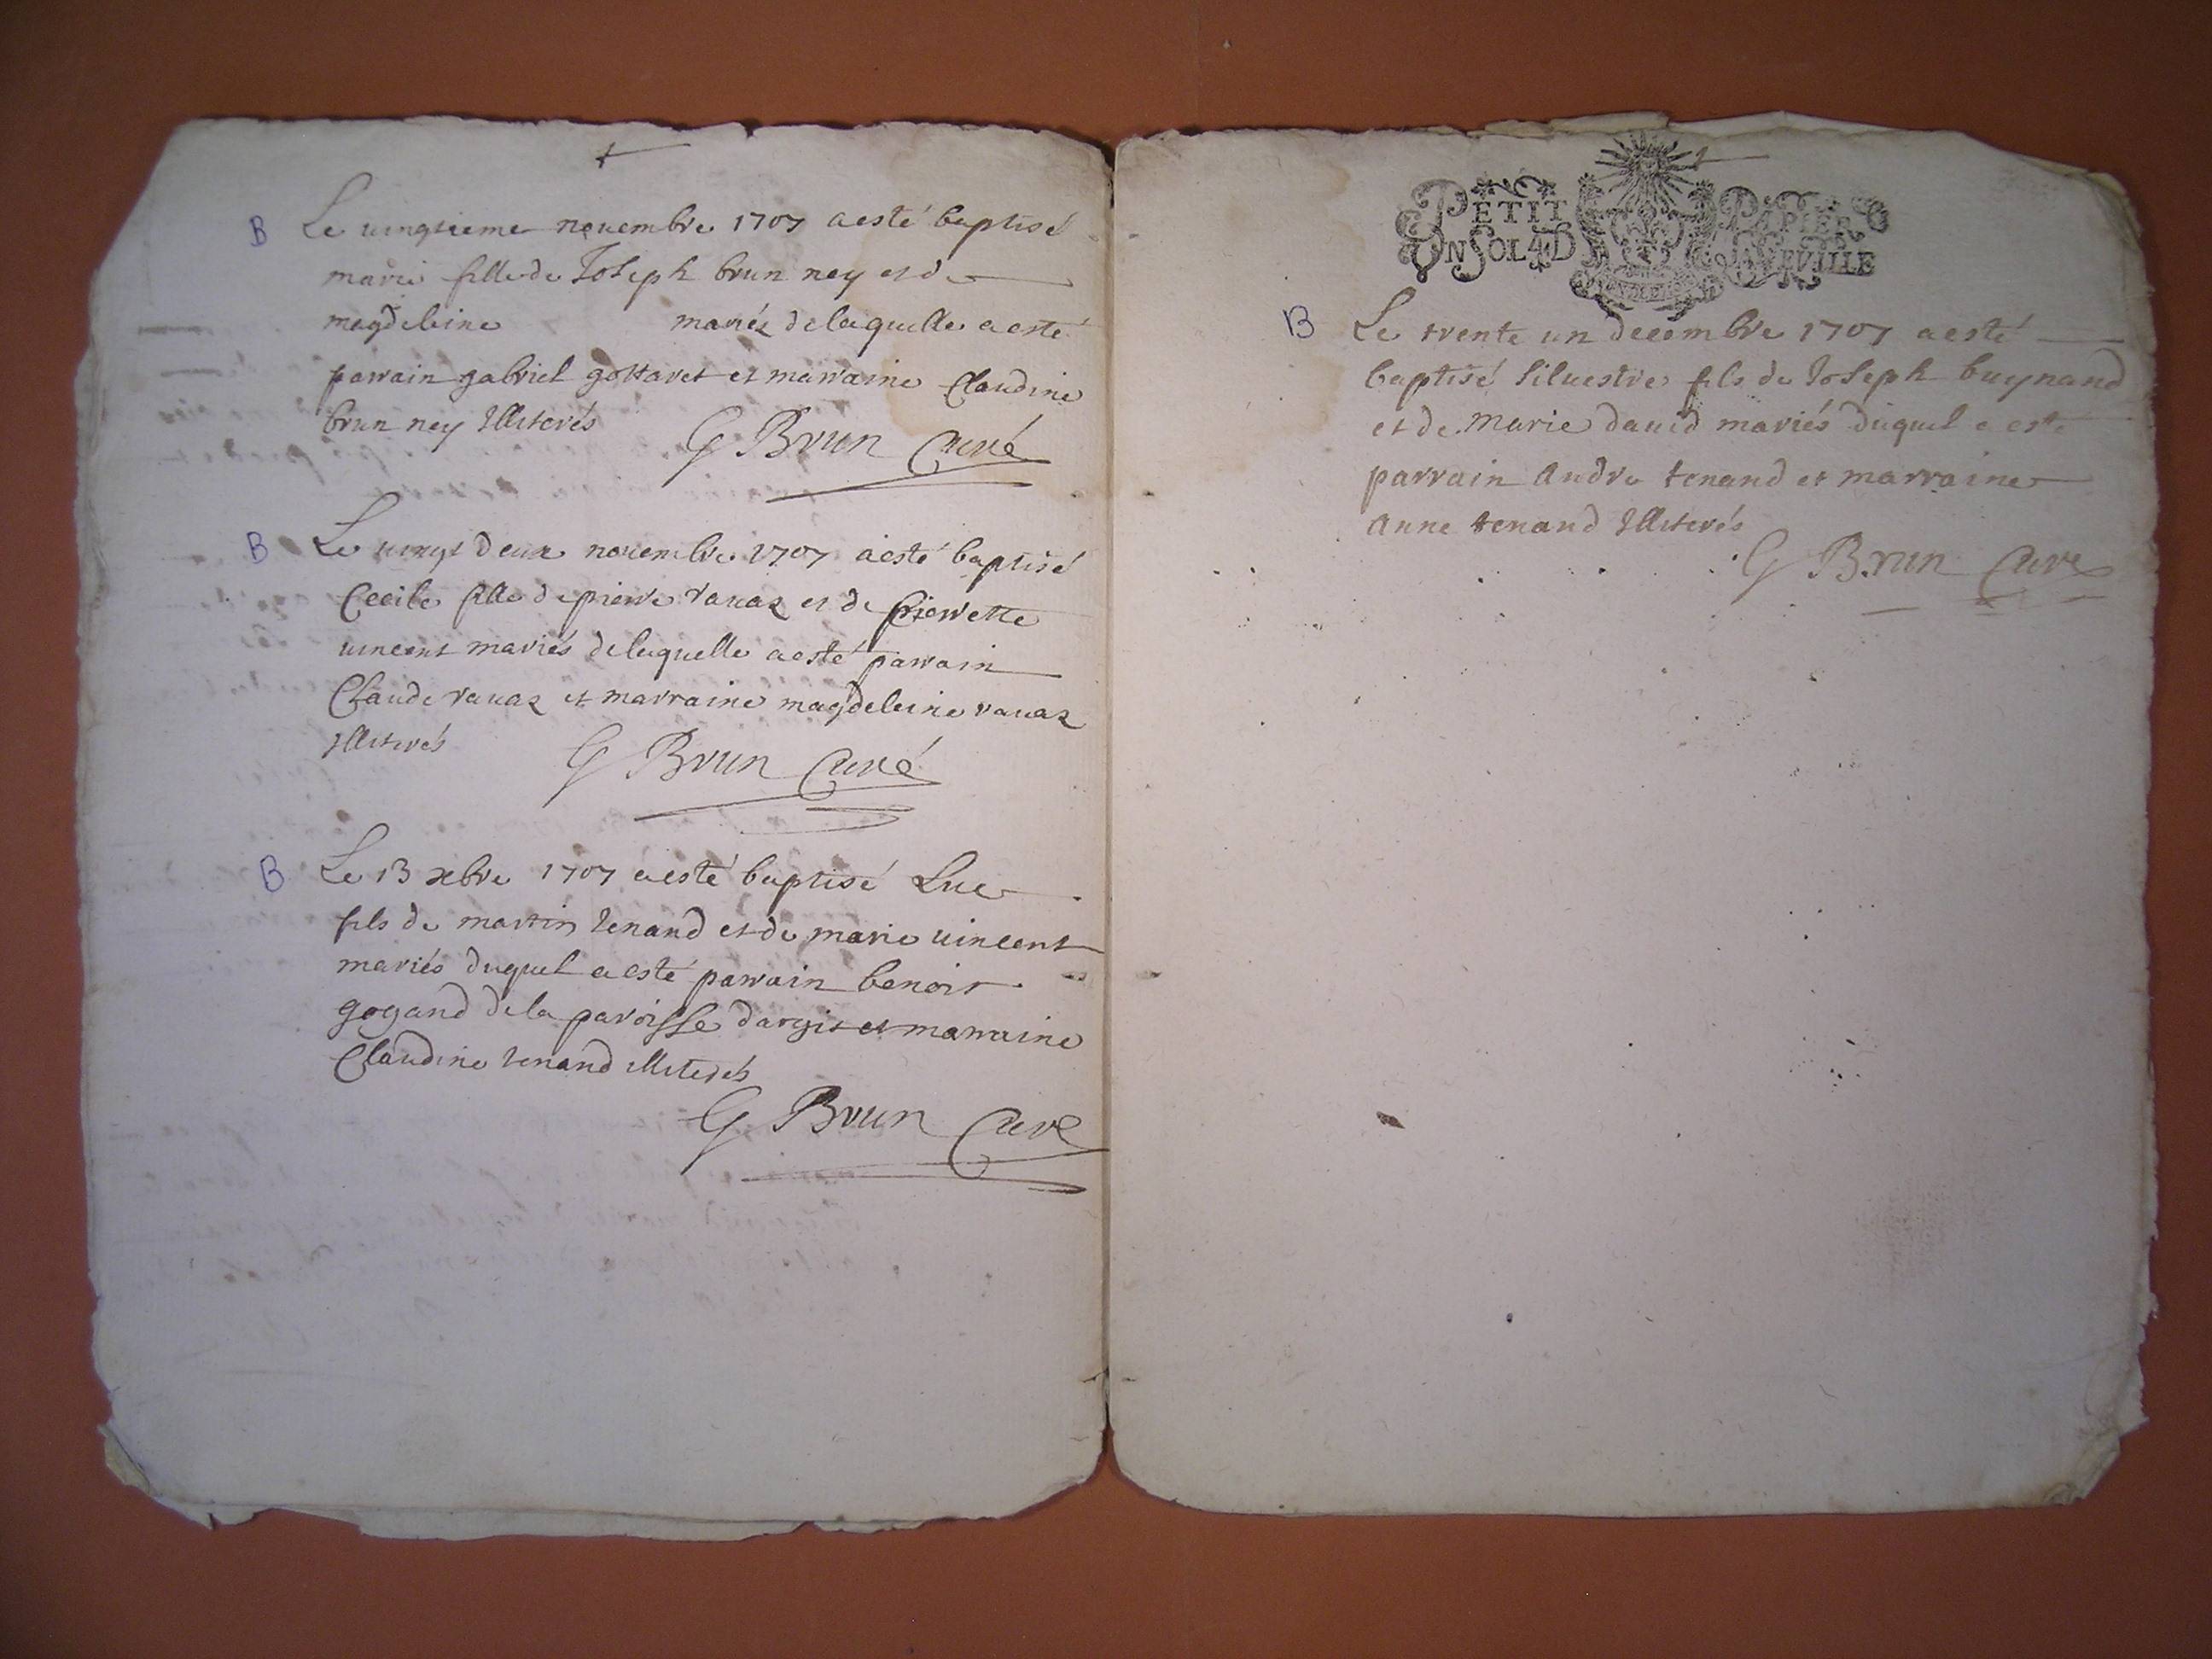 B Le uingtieme nouembre 1707 a esté baptisé
marie fille de Joseph brun ney et de
magdeleine mariés de laquelle a esté
parrain gabriel gottaret et marraine Claudine
brun ney Illiterés
G Brun Curé
B Le uingt deux nouembre 1707 a esté baptisé
Cecile fille de pierre rauaz et de pierrette
uincent mariés de laquelle a esté parrain
Claude rauaz et marraine magdeleine rauaz
Illiterés
G Brun Curé
B Le 13 xbre 1707 a esté baptisé Luc
fils de martin tenand et de marie uincent
mariés duquel a esté parrain benoit
gogand de la paroisse dargit et marraine
Claudine tenand illiterés
G Brun Curé
PETIT PAPIER
UN SOL 4 D LA FEVILLE
B Le trente un decembre 1707 a esté
baptisé Siluestre fils de Joseph buynand
et de marie dauid mariés duquel a esté
parrain andre tenand et marraine
anne tenand Illiterés
G Brun Curé